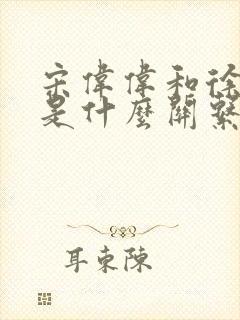 宋偉偉和徐
是什麼關繫
耳東陳